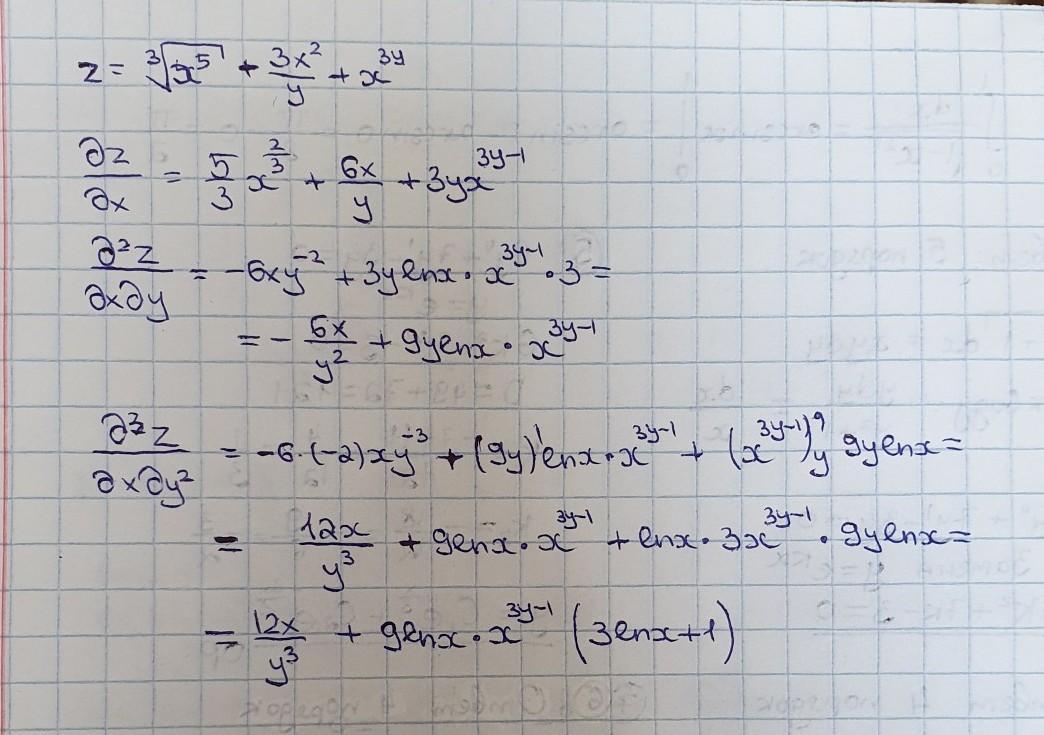 z = ∛x⁵ + 3x²/y + x^(3y)
∂z/∂x = 5/3 x^(2/3) + 6x/y + 3yx^(3y-1)
∂²z/∂x∂y = -6xy⁻² + 3y lnx · x^(3y-1) · 3 =
= - 6x/y² + 9y lnx · x^(3y-1)
∂³z/∂x∂y² = -6·(-2)xy⁻³ + (9y)' lnx · x^(3y-1) + (x^(3y-1))'_y 9y lnx =
= 12x/y³ + 9 lnx · x^(3y-1) + lnx · 3x^(3y-1) · 9y lnx =
= 12x/y³ + 9 lnx · x^(3y-1) (3 lnx + 1)